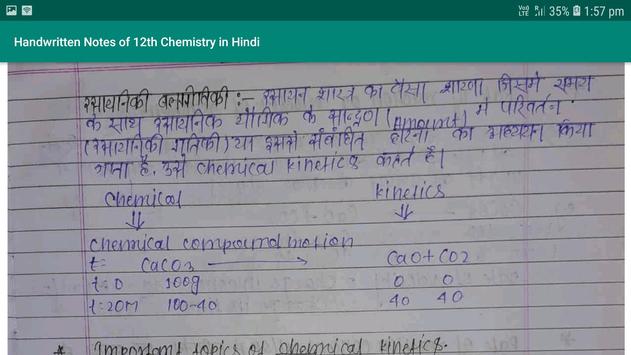 VoO LTE 35% 1:57 pm
Handwritten Notes of 12th Chemistry in Hindi
रसायनिकी बलगतिकी :- रसायन शास्त्र का वैसा शाखा जिसमे समय
के साथ रसायनिक यौगिक के सान्द्रण (Amount) में परिवर्तन
(रसायनिकी गतिकी) या इससे संबंधित घटना का अध्ययन किया
गया है, उसे chemical kinetics कहते हैं।
Chemical kinetics
⇓ ⇓
chemical compound motion
t= CaCO3 → CaO+CO2
t=0 100g 0 0
t=20M 100-40 40 40
* Important topics of chemical kinetics.